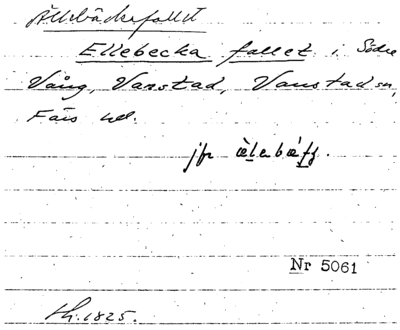 Ällebäckafallet
Ellebecka fallet i Södre
Vång, Vanstad, Vanstad sn,
Färs hd.
jfr
Nr 5061
Sk. 1825.